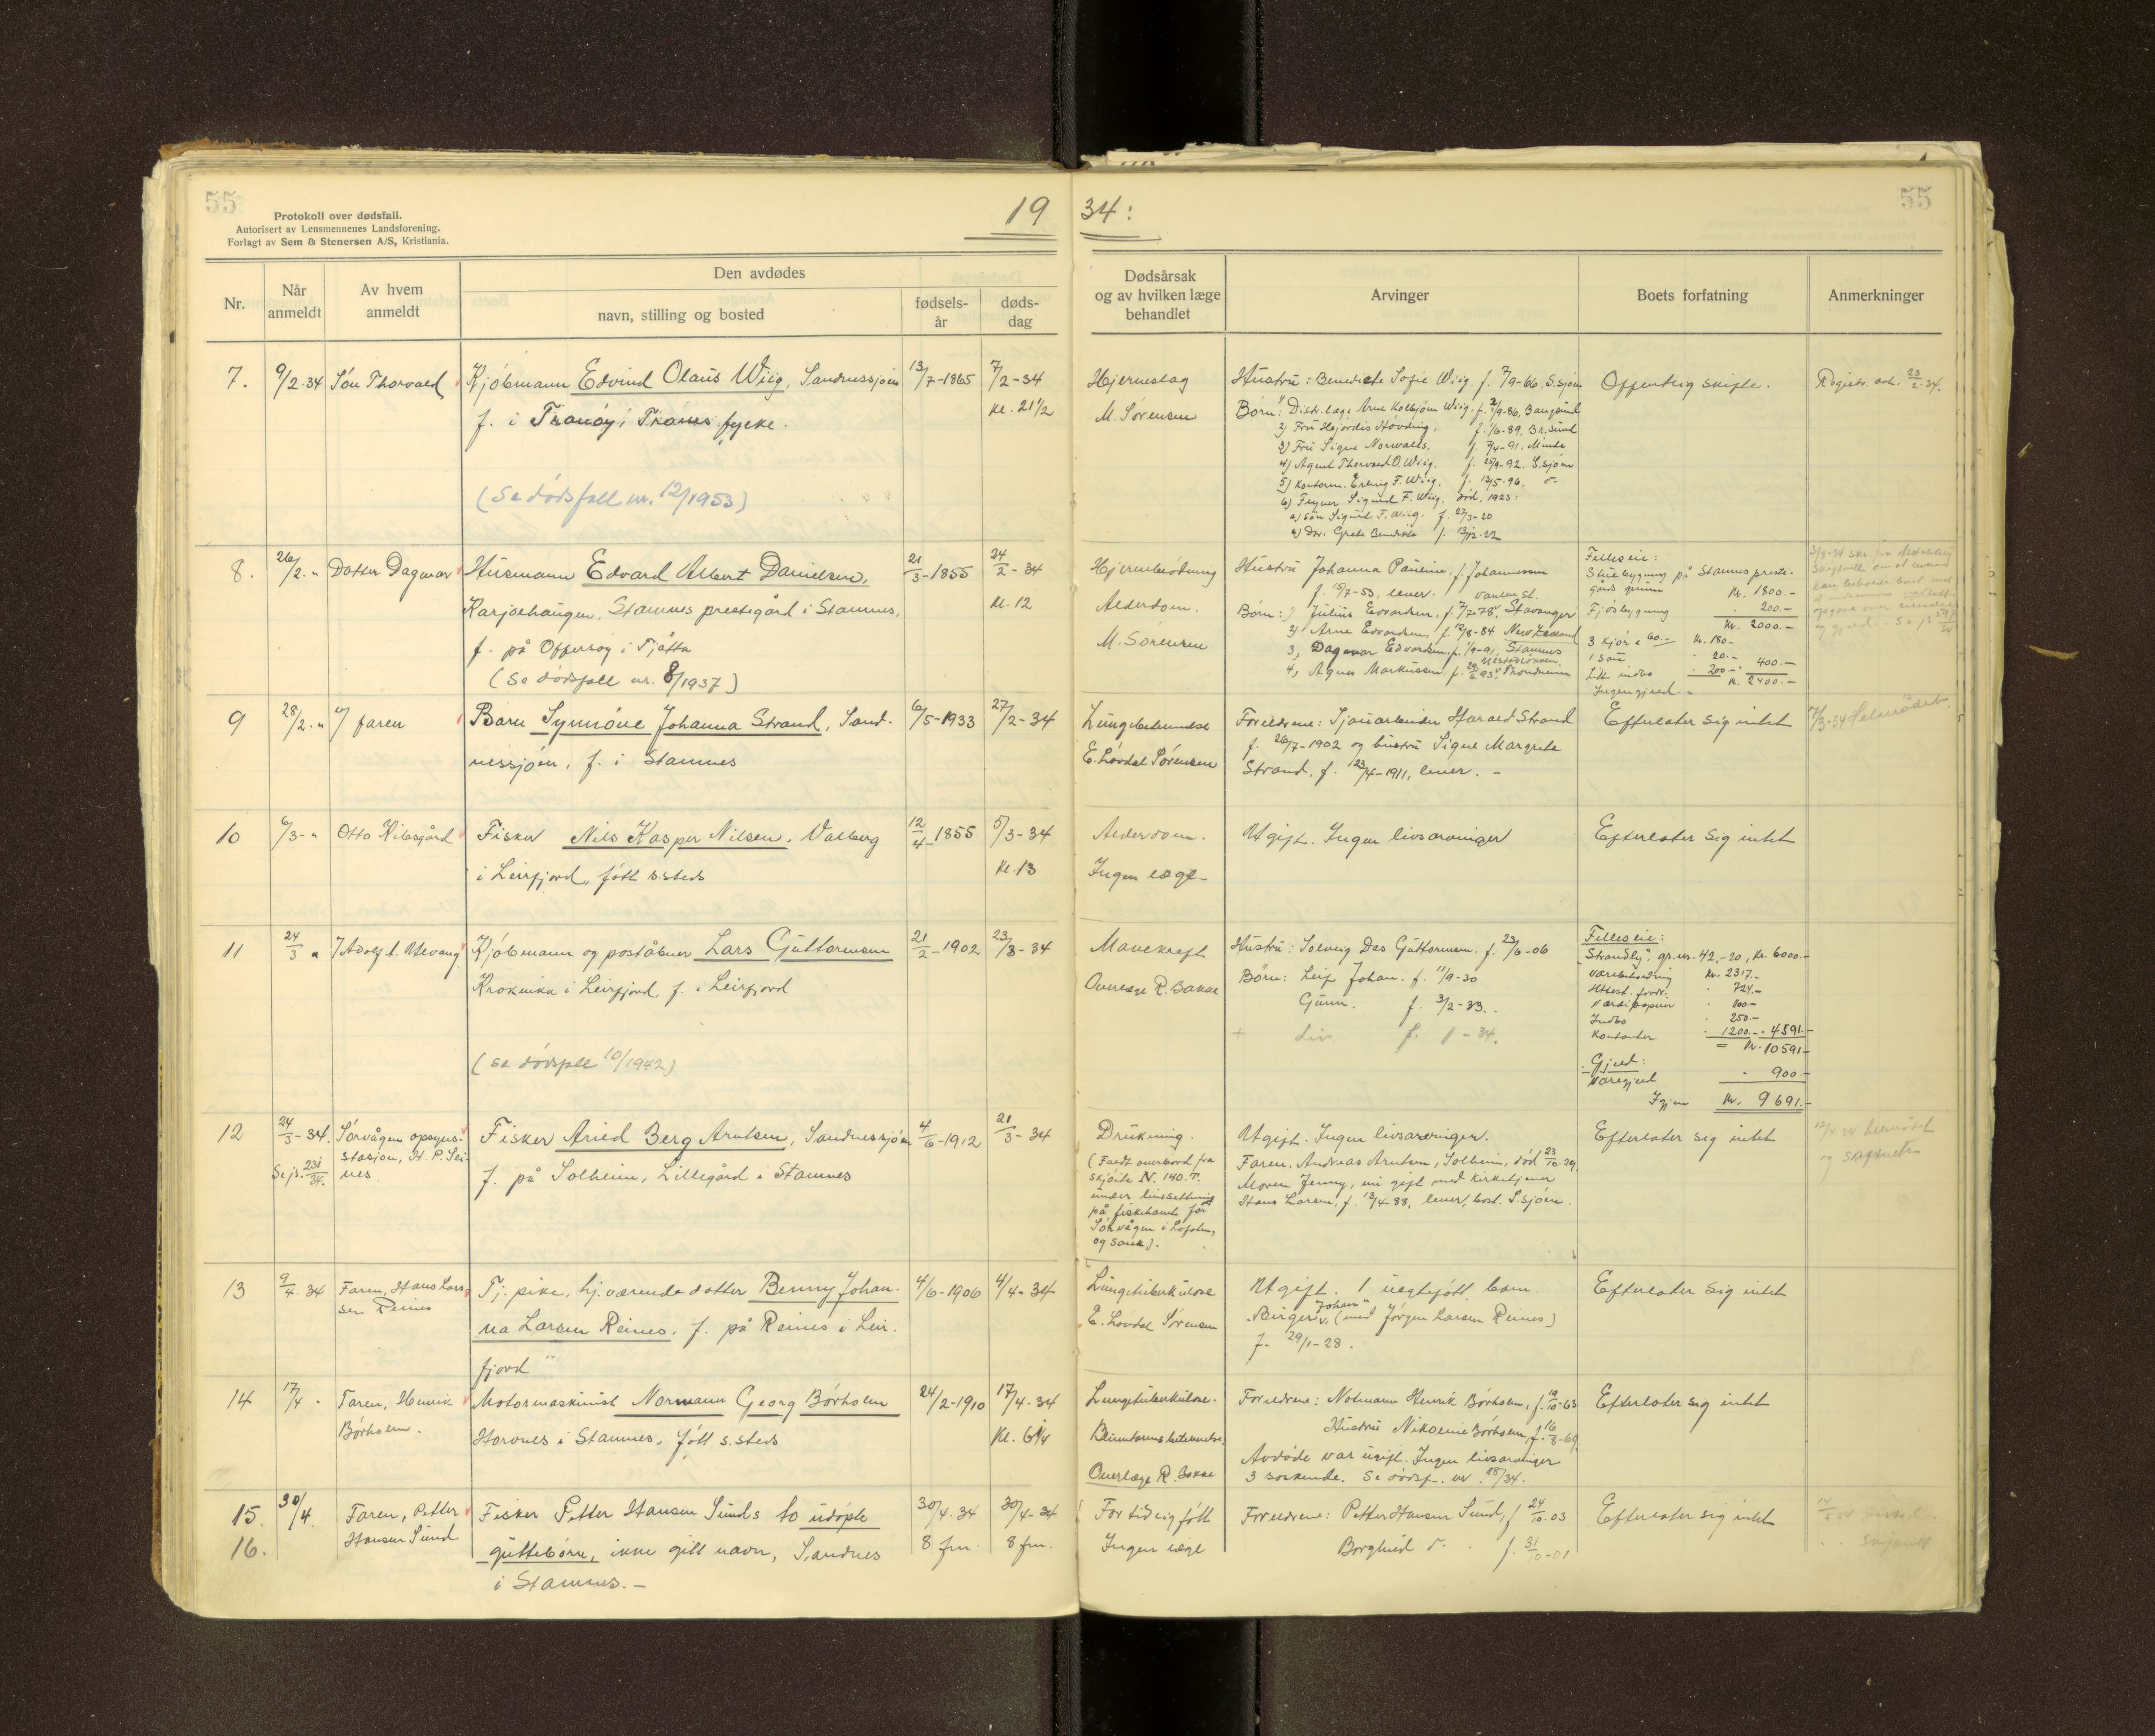 55
Protokoll over dødsfall.
Autorisert av Lensmennenes Landsforening.
Forlagt av Sem & Stenersen A/S, Kristiania.
19 34:
55
Nr.
Når anmeldt
Av hvem anmeldt
Den avdødes
navn, stilling og bosted
fødsels-år
døds-dag
Dødsårsak og av hvilken læge behandlet
Arvinger
Boets forfatning
Anmerkninger
7. 9/2-34 Sön Thorvald Kjöbmann Edvind Olaus Wiig, Sandnessjöen 13/7-1865 7/2-34
f. i Tranöy i Troms fylke. kl. 21 1/2
(Se dödsfall nr. 12/1953)
Hjerneslag
M. Sörensen
Hustru: Benedicte Sofie Wiig. f. 7/9-66, S.sjöen
Börn: 1) Distr. læge Arne Kolbjörn Wiig, f. 2/9-86, Bangsund
2) Fru Hjördis Hövding, f. 1/6-89, Br.sund
3) Fru Signe Norwalls, f. 7/4-91, Minde
4) Agent Thorvald O. Wiig, f. 25/9-92. S.sjöen
5) Kontorm. Erling F. Wiig, f. 13/5-96,
6) Sigurd F. Wiig, död, 1923:
a) Sön Sigurd F. Wiig. f. 27/3-20
b) Dtr. Grete Benedicte f. 13/12-22
Offentlig skifte.
Registr. avh. 23/2-34.
8. 26/2 " Datter Dagmar Husmann Edvard Albert Danielsen, 21/3-1855 24/2-34
Karjolhaugen, Stamnes prestegård i Stamnes, kl. 12
f. på Offersöy i Tjötta
(Se dödsfall nr. 8/1937)
Hjerneblödning
Alderdom.
M. Sörensen
Hustru Johanna Pauline, f. Johannessen
f. 18/7-53, lever.
Börn: 1) Julius Edvardsen, f. 7/7-78, Stavanger
2) Arne Edvardsen, f. 12/8-84 New Zealand
3, Dagmar Edvardsen, f. 1/9-91, Stamnes
4, Agnes Markussen, f. 29/6 93, Trondheim
Felleseie:
Stuebygning på Stamnes preste-
gårds grunn kr. 1800.-
Fjösbygning 200.-
kr. 2000.-
3 kjör a 60.- kr. 180.-
1 sau 20.-
Litt indbo 200.- 400.-
kr. 2400.-
Ingen gjeld.-
9 28/2 " faren Barn Synnöve Johanna Strand, Sand- 6/5-1933 27/2-34
nessjöen, f. i Stamnes
Lungebetennelse
E. Lövdal Sörensen
Foreldrene: Sjauarbeider Harald Strand
f. 26/7-1902 og hustru Signe Margrete
Strand, f. 23/4-1911, lever. -
Efterlater sig intet
10 6/3- " Otto Nilsgård Fisker Nils Kasper Nilsen, Valberg 12/4-1855 5/3-34
i Leirfjord, född s.steds kl. 13
Alderdom.
Ingen læge-
Ugift. Ingen livsarvinger
Efterlater sig intet
11 24/3 " Kjöbmann og poståbner Lars Guttormsen 21/2-1902 23/3-34
i Leirfjord, f. i Leirfjord
(se dödsfall 10/1942)
Mavekreft
Overlæge R. Bakke
Hustru: Solveig Das Guttormsen. f. 23/6-06
Börn: Leif Johan. f. 11/9-30
Gunn. f. 3/2-33.
+ Liv f. 1-34.
Felleseie:
"Strandly", gr.nr. 42,-20, kr. 6000.-
Varebeholdning kr. 2317.-
Utest. fordr. 724.-
Værdipapirer 100-
Indbo 250.-
Kontanter 1200.- 4591.-
= kr. 10591.-
Gjeld:
Varegjeld 900.-
Igjen kr. 9691.-
12 24/3-34. Sörvågen opsyns- Fisker Arild Berg Arntsen, Sandnessjöen 4/6-1912 21/3-34
stasjon, H. P. Sei-
nes
f. på Solheim, Lillegård i Stamnes
Drukning.
(Faldt overbord fra
sköite N. 140. T.
under linesetting
på fiskehavet for
Sörvågen i Lofoten,
og sank).
Ugift. Ingen livsarvinger.
Faren, Andreas Arntsen, Solheim, död 23/10-29.
Moren Jenny, nu gift med kirketjener
Hans Larsen, f. 13/4-88, lever, bost. S.sjöen.
Efterlater sig intet
13 9/4 34 Faren, Hans Lars- Tj. pike, hj.værende datter Benny Johan- 4/6-1906 4/4-34
sen Reines
na Larsen Reines, f. på Reines i Leir-
fjord
Lungetuberkulose
E. Lövdal Sörensen
Ugift. 1 uegtefött barn
Birger Johan (med Jörgen Larsen Reines)
f. 29/1-28.
Efterlater sig intet
14 17/4 Faren, Henrik Motormaskinist Normann Georg Börholm 24/2-1910 17/4-34
Börholm. Horvnes i Stamnes, fött s.steds kl. 6 1/4
Lungetuberkulose.
Overlæge R. Bakke
Foreldrene: Notmann Henrik Börholm, f. 19/10-65
Hustru Nikoline Börholm, f. 16/8-69
Avdöde var ugift. Ingen livsarvinger
3 söskende. Se dödsf. nr. 18/34.
Efterlater sig intet
15. 30/4. Faren, Petter Fisker Petter Hansen Sunds to udöpte 30/4-34 30/4-34
16. Hansen Sund guttebörn, ikke gitt navn, Sandnes 8 fm. 8 fm.
i Stamnes.-
For tidlig fött
Ingen læge
Foreldrene: Petter Hansen Sund, f. 24/10-03
Borghild f. 31/10-01
Efterlater sig intet